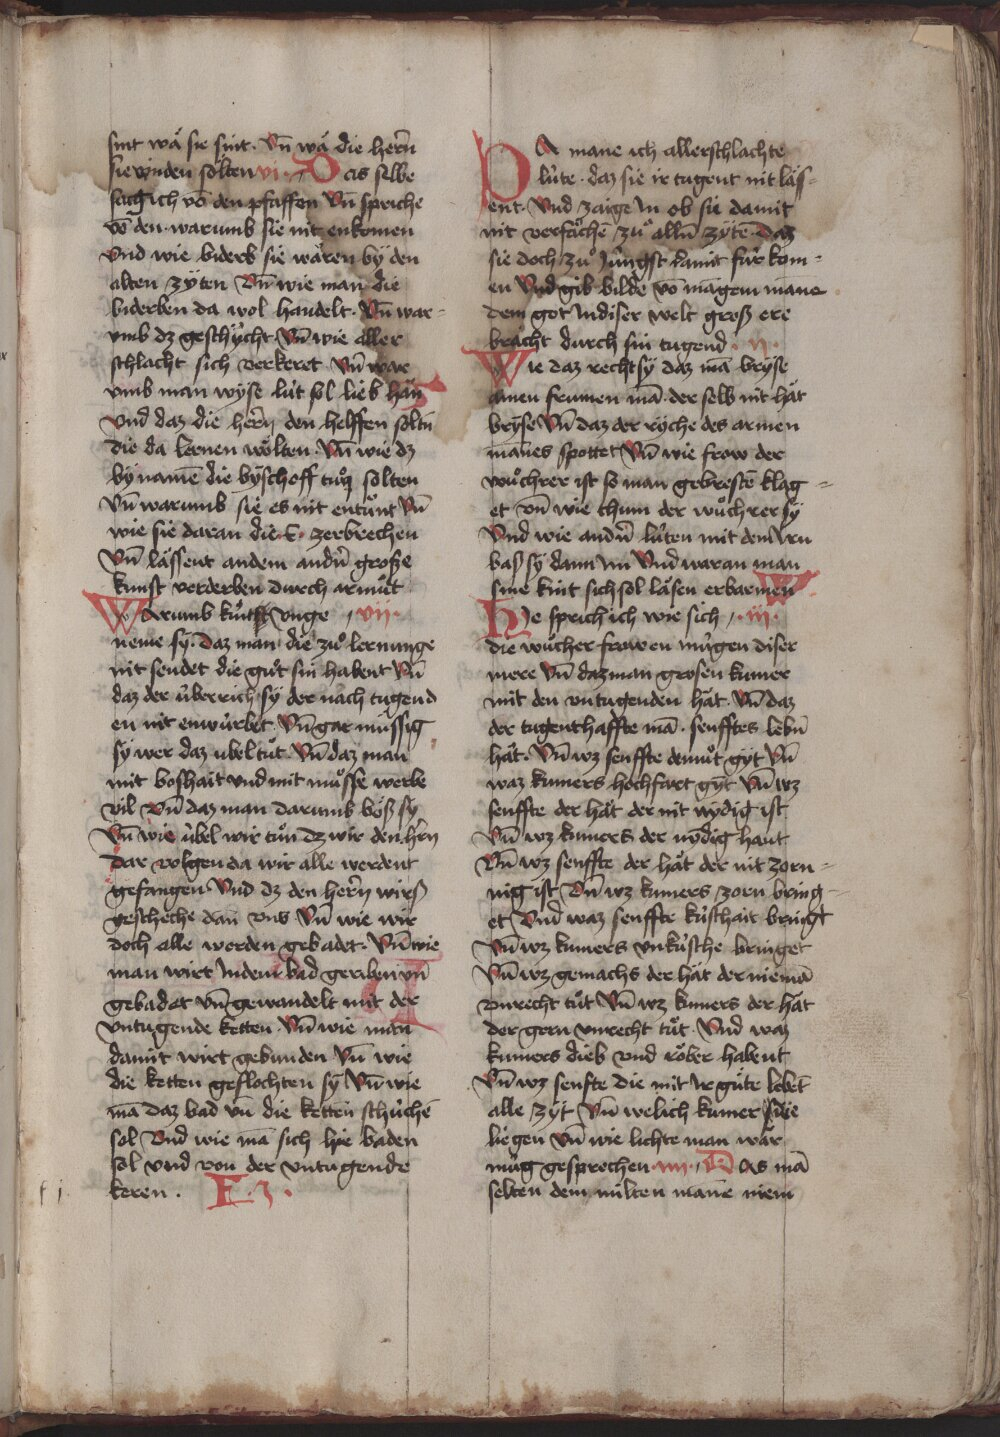 sint wā sie sint. Vn̄ wā die hern̄
sie vinden sölten vi. Das selbe
sag ich vō den pfaffen Vn̄ spriche
vō den. warumb sie nit enkomen
Vnd wie biderb sie wären by den
alten zÿten Vn̄ wie man die
biderben da wol handelt. Vn̄ war-
vmb dz geschÿcht Vn̄ wie aller
schlacht sich verkeret Vn̄ war
vmb man wÿse lüt sol lieb hān
Vnd daz die hern̄ den helffen soltn̄
die da lernen wölten. Vn̄ wie dz
by namē die bÿschoff tůn solten
Vn̄ warumb sie es nit entůnt Vn̄
wie sie daran die .E. zerbrechen
Vn̄ lässent andem andn̄ große
kunst verderben durch armůt
Warumb vnge vii.
neme sÿ. daz man die zů lernunge
nit sendet die gůt sin habent Vn̄
daz der überrich sÿ der nach tugend
en nit enwürbet. Vn̄ gar müssig
sÿ wer daz ubel tůt. Vn̄ daz man
mit boshait vnd mit můsse werbe
vil Vn̄ daz man darumb böß sÿ
Vn̄ wie übel wir tůn dz wir den hn̄
dar volgen da wir alle werdent
gefangen Vnd dz den hern̄ wirß
geschehe dan̄ vns Vn̄ wie wir
doch alle werden gebadet. Vn̄ wie
man wirt Indem bad geriben vn̄
gebadet vn̄ gewandelt mit der
vntugende ketten. Vn̄ wie man
damit wirt gebunden Vn̄ wie
die ketten geflochten sÿ Vn̄ wie
mā daz bad vn̄ die ketten schüchē
sol Vnd wie mā sich hie baden
sol vnd von der vntugende
keren. E.3.
DA mane ich allerschlachte
lüte. daz sie ir tugent nit läs-
ent. Vnd zaige In ob sie damit
nit verfächē zů alln̄ zÿtē. daz
sie doch zů Jüngst damit für kom-
en Vnd gib bilde vō māgem mane
dem got Indiser welt groß ere
bracht durch sin tugend. ii.
Wie daz recht sÿ daz mā brÿse
ainen frumen mā. der selb nit hāt
brÿse Vn̄ daz der rÿche des armen
mānes spottet Vn̄ wie frow der
wůchrer ist so man gebrestē klag-
et vn̄ wie thum der wůchrer sÿ
Vnd wie andn̄ lüten mit dem Irn
baß sÿ dann Im Vnd waran man
sine kint sich sol läsen erbarmen
Hie sprich ich wie sich iii.
die wůcher frowen mügen diser
mere Vn̄ daz man grosen kumer
mit den vntugenden hāt. Vn̄ daz
der tugenthaffte mā. senfftes lebn̄
hāt. Vn̄ wz senffte demůt gÿt Vn̄
waz kumers hochfart gÿt Vn̄ wz
senffte der hāt der nit nÿdig ist
Vn̄ wz kumers der nÿdig haut
Vn̄ wz senffte der hāt der nit zorn-
nig ist Vn̄ wz kumers zorn bring-
et Vnd waz senffte küschait bringt
Vn̄ wz kumers vnküsche bringet
Vn̄ wz gemachs der hāt der niemā
vnrecht tůt Vn̄ wz kumers der hāt
der gern vnrecht tůt. Vnd waz
kumers dieb vnd röber habent
Vn̄ wz senfte die mit Ir gůte lebēt
alle zÿt Vn̄ welich kumer sÿe
liegen Vn̄ wie lichte man wār
müg gesprechen. iiii. Das mā
selten dem milten manē niem